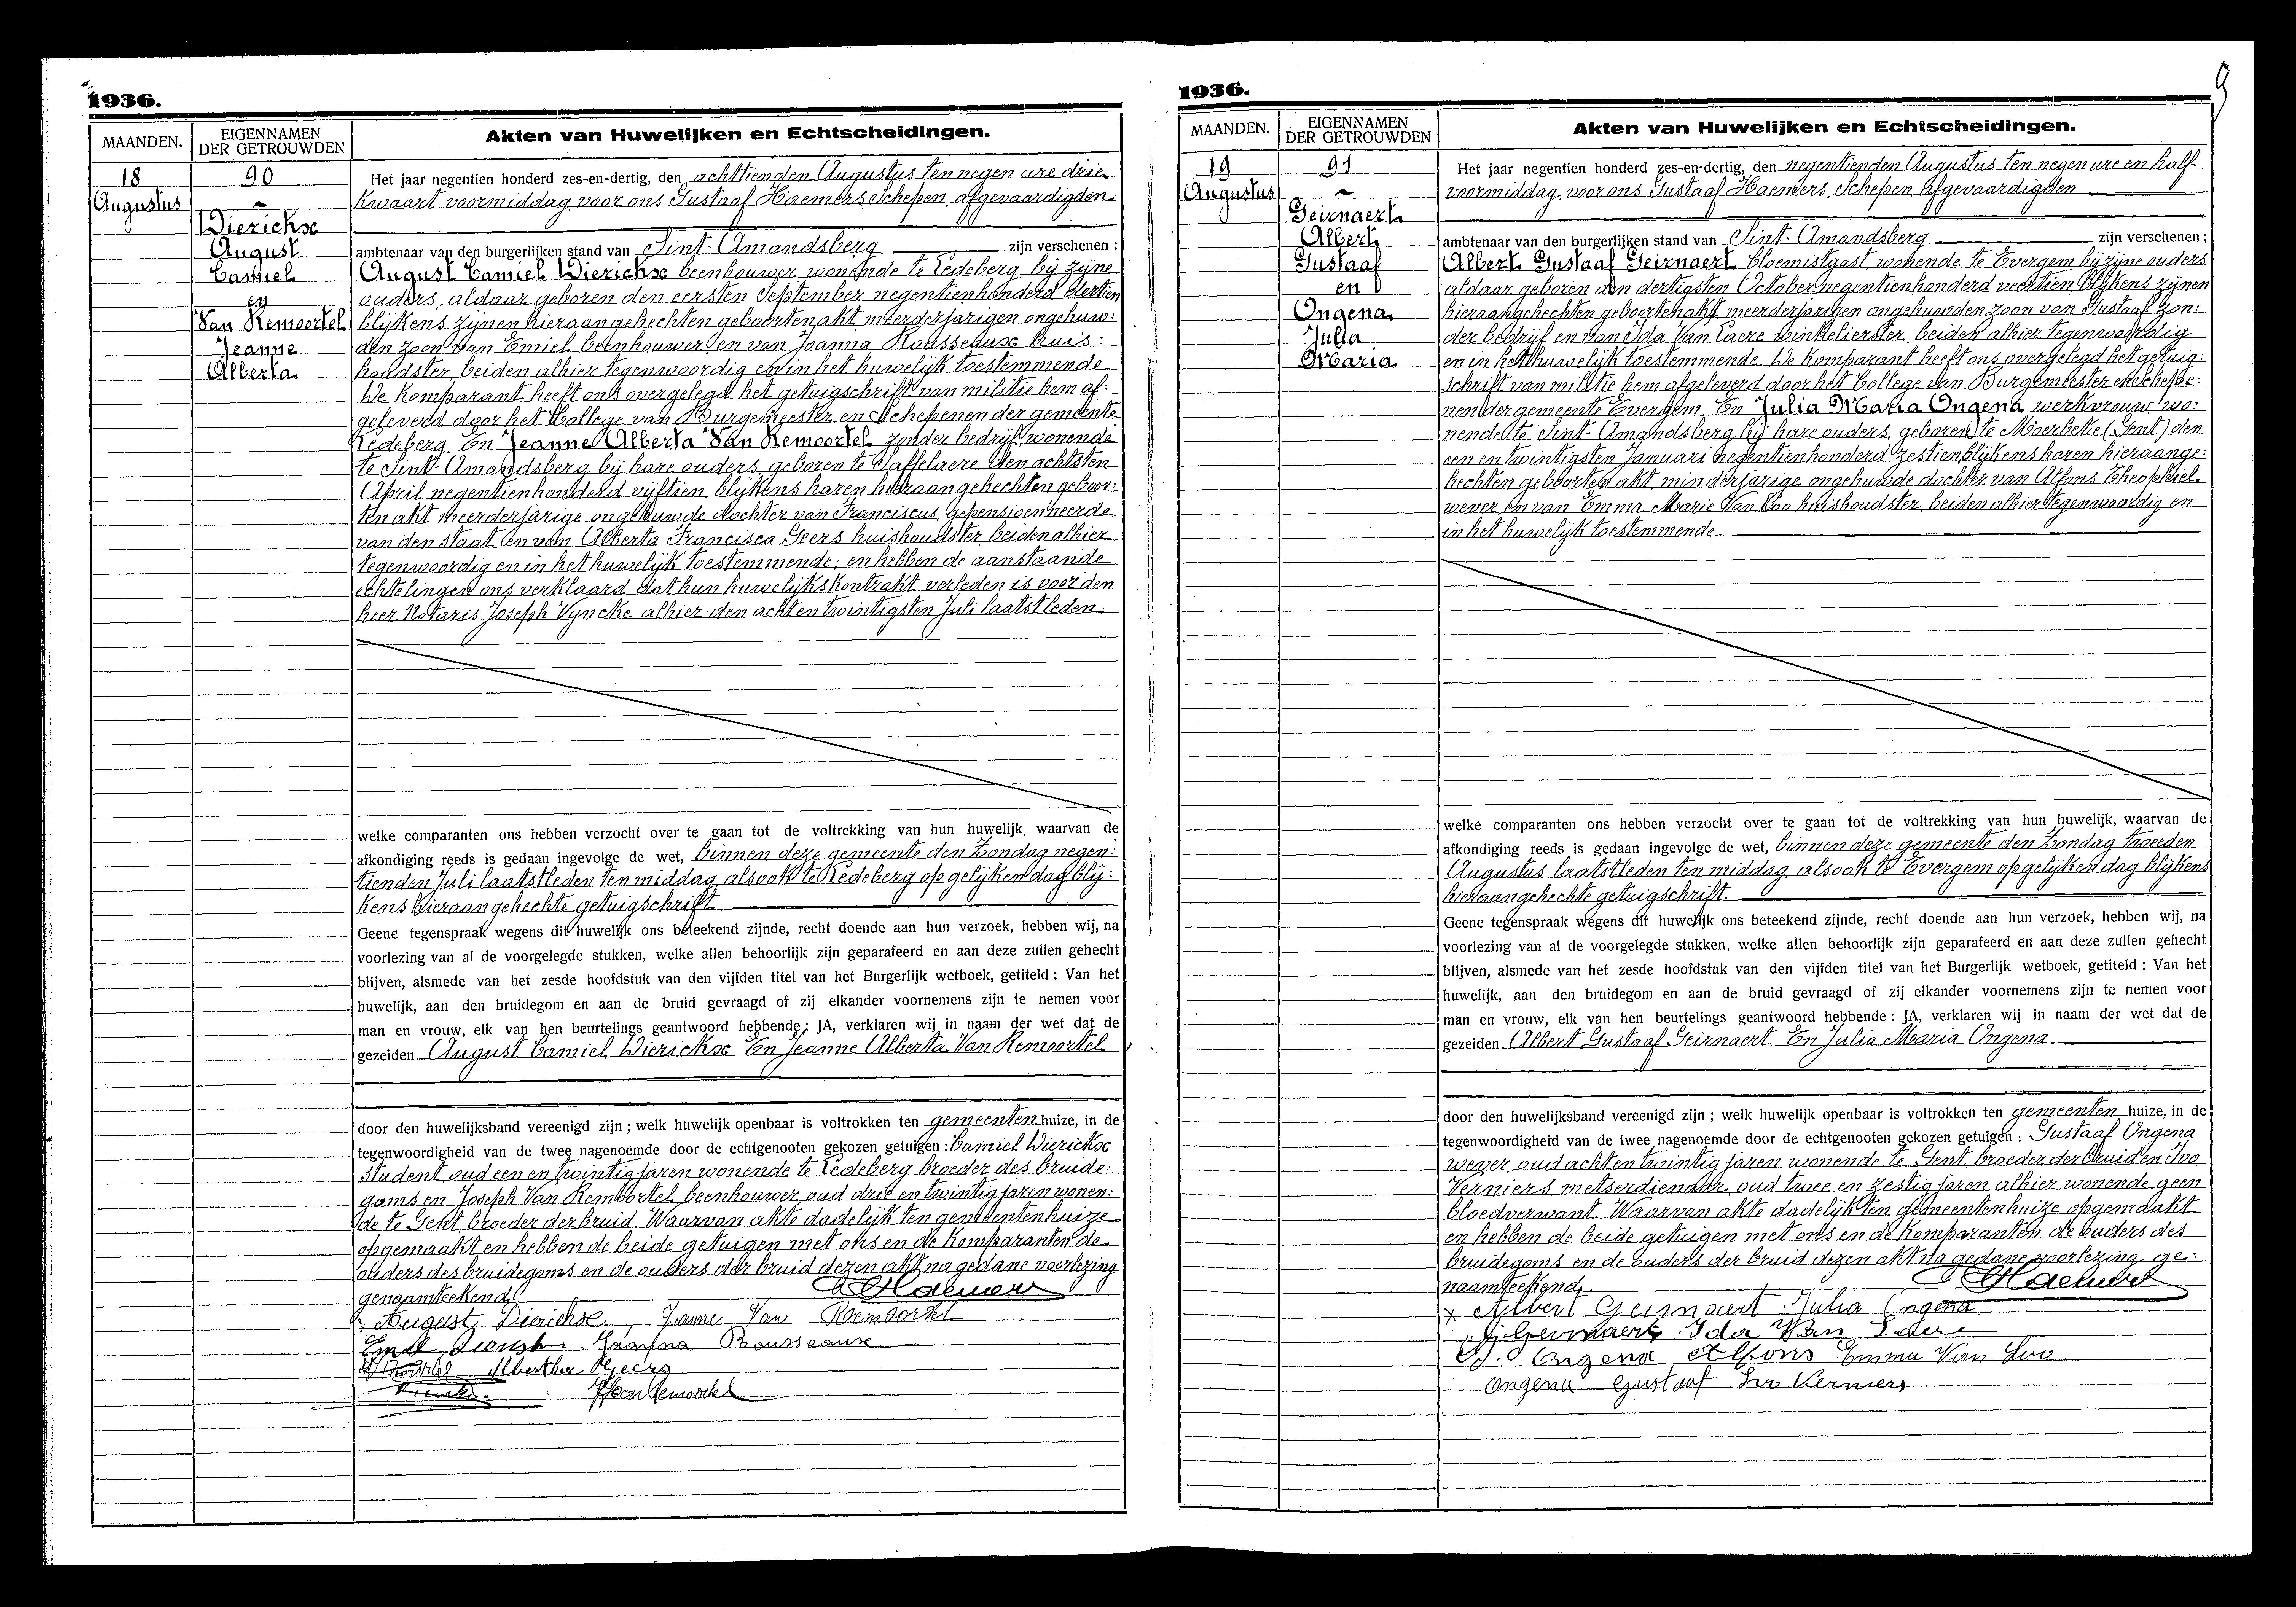 1936.
MAANDEN.
EIGENNAMEN
DER GETROUWDEN
Akten van Huwelijken en Echtscheidingen.
18
Augustus
90
Dierickx
August
Camiel
en
Van Remoortel
Jeanne
Alberta
Het jaar negentien honderd zes-en-dertig, den achttienden Augustus ten negen ure drie
kwaart voormiddag voor ons Gustaaf Haemers Schepen afgevaardigden
ambtenaar van den burgerlijken stand van Sint-Amandsberg zijn verschenen :
August Camiel Dierickx beenhouwer wonende te Ledeberg bij zijne
ouders, aldaar geboren den eersten September negentienhonderd dertien
blijkens zijnen hieraangehechten geboortenakt meerderjarigen ongehuw:
den zoon van Emiel beenhouwer en van Joanna Rousseaux huis:
houdster beiden alhier tegenwoordig en in het huwelijk toestemmende
De Komparant heeft ons overgelegd het getuigschrift van militie hem af:
geleverd door het College van Burgemeester en Schepenen der gemeente
Ledeberg En Jeanne Alberta Van Remoortel zonder bedrijf wonende
te Sint-Amandsberg bij hare ouders geboren te Saffelaere den achtsten
April negentienhonderd vijftien blijkens haren hieraangehechten geboor:
tenakt meerderjarige ongehuwde dochter van Franciscus gepensioenneerde
van den staat en van Alberta Francisca Geers huishoudster beiden alhier
tegenwoordig en in het huwelijk toestemmende; en hebben de aanstaande
echtelingen ons verklaard dat hun huwelijkskontrakt verleden is voor den
heer Notaris Joseph Vyncke alhier den acht en twintigsten Juli laatstleden.
welke comparanten ons hebben verzocht over te gaan tot de voltrekking van hun huwelijk, waarvan de
afkondiging reeds is gedaan ingevolge de wet, binnen deze gemeente den Zondag negen:
tienden Juli laatstleden ten middag alsook te Ledeberg op gelijken dag blij:
kens hieraangehechte getuigschrift.
Geene tegenspraak wegens dit huwelijk ons beteekend zijnde, recht doende aan hun verzoek, hebben wij, na
voorlezing van al de voorgelegde stukken, welke allen behoorlijk zijn geparafeerd en aan deze zullen gehecht
blijven, alsmede van het zesde hoofdstuk van den vijfden titel van het Burgerlijk wetboek, getiteld : Van het
huwelijk, aan den bruidegom en aan de bruid gevraagd of zij elkander voornemens zijn te nemen voor
man en vrouw, elk van hen beurtelings geantwoord hebbende : JA, verklaren wij in naam der wet dat de
gezeiden August Camiel Dierickx En Jeanne Alberta Van Remoortel
door den huwelijksband vereenigd zijn ; welk huwelijk openbaar is voltrokken ten gemeenten huize, in de
tegenwoordigheid van de twee nagenoemde door de echtgenooten gekozen getuigen : Camiel Dierickx
student oud een en twintig jaren wonende te Ledeberg broeder des bruide:
goms en Joseph Van Remoortel beenhouwer oud drie en twintig jaren wonen:
de te Gent broeder der bruid Waarvan akte dadelijk ten gemeentenhuize
opgemaakt en hebben de beide getuigen met ons en de Komparanten de
ouders des bruidegoms en de ouders der bruid dezen akt na gedane voorlezing
genaamteekend. G Haemers
August Dierickx Jeanne Van Remoortel
Emiel Joanna Rousseaux
Geers
1936.
9
MAANDEN.
EIGENNAMEN
DER GETROUWDEN
Akten van Huwelijken en Echtscheidingen.
19
Augustus
91
Geirnaert
Albert
Gustaaf
en
Ongena
Julia
Maria
Het jaar negentien honderd zes-en-dertig, den negentienden Augustus ten negen ure en half
voormiddag voor ons Gustaaf Haemers Schepen afgevaardigden
ambtenaar van den burgerlijken stand van Sint-Amandsberg zijn verschenen ;
Albert Gustaaf Geirnaert bloemistgast wonende te Evergem bij zijne ouders
aldaar geboren den dertigsten October negentienhonderd veertien blijkens zijnen
hieraangehechten geboortenakt meerderjarigen ongehuwden zoon van Gustaaf zon:
der bedrijf en van Ida Van Laere winkelierster beiden alhier tegenwoordig
en in het huwelijk toestemmende. De Komparant heeft ons overgelegd het getuig:
schrift van militie hem afgeleverd door het College van Burgemeester en Schepe:
nen der gemeente Evergem En Julia Maria Ongena werkvrouw wo:
nende te Sint-Amandsberg bij hare ouders geboren te Moerbeke (Gent) den
een en twintigsten Januari negentienhonderd zestien blijkens haren hieraange:
hechten geboortenakt minderjarige ongehuwde dochter van Alfons Theophiel
wever en van Emma Marie Van Loo huishoudster beiden alhier tegenwoordig en
in het huwelijk toestemmende.
welke comparanten ons hebben verzocht over te gaan tot de voltrekking van hun huwelijk, waarvan de
afkondiging reeds is gedaan ingevolge de wet, binnen deze gemeente den Zondag tweeden
Augustus laatstleden ten middag alsook te Evergem op gelijken dag blijkens
hieraangehechte getuigschrift.
Geene tegenspraak wegens dit huwelijk ons beteekend zijnde, recht doende aan hun verzoek, hebben wij, na
voorlezing van al de voorgelegde stukken, welke allen behoorlijk zijn geparafeerd en aan deze zullen gehecht
blijven, alsmede van het zesde hoofdstuk van den vijfden titel van het Burgerlijk wetboek, getiteld : Van het
huwelijk, aan den bruidegom en aan de bruid gevraagd of zij elkander voornemens zijn te nemen voor
man en vrouw, elk van hen beurtelings geantwoord hebbende : JA, verklaren wij in naam der wet dat de
gezeiden Albert Gustaaf Geirnaert En Julia Maria Ongena
door den huwelijksband vereenigd zijn ; welk huwelijk openbaar is voltrokken ten gemeenten huize, in de
tegenwoordigheid van de twee nagenoemde door de echtgenooten gekozen getuigen : Gustaaf Ongena
wever oud acht en twintig jaren wonende te Gent broeder der bruid en Ivo
Verniers metserdienaar oud twee en zestig jaren alhier wonende geen
bloedverwant Waarvan akte dadelijk ten gemeentenhuize opgemaakt
en hebben de beide getuigen met ons en de Komparanten de ouders des
bruidegoms en de ouders der bruid dezen akt na gedane voorlezing ge:
naamteekend. G Haemers
x Albert Geirnaert Julia Ongena
Ida Van Laere
Ongena Alfons Emma Van Loo
Ongena Gustaaf Ivo Verniers